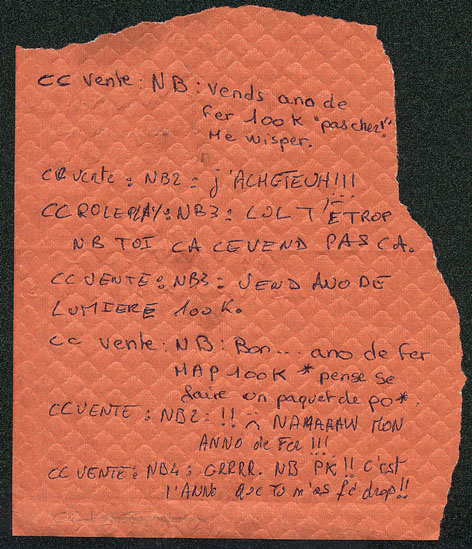 CC vente : NB : vends ano de
fer 100k "pas cher!"
Me wisper.
CC vente : NB2 : j'ACHETEUH!!!
CC ROLEPLAY : NB3 : LOL T'ETROP
NB TOI CA CEVEND PAS CA.
CC VENTE : NB3 : VEND ANO DE
LUMIERE 100K.
CC vente : NB : Bon... ano de fer
MAP 100K *pense se
faire un paquet de po*.
CC VENTE : NB2 : !! NAAAAAW MON
ANNO de Fer !!!
CC VENTE : NB4 : GRRRR. NB PK !! C'est
l'ANNO que tu m'as fé drop!!